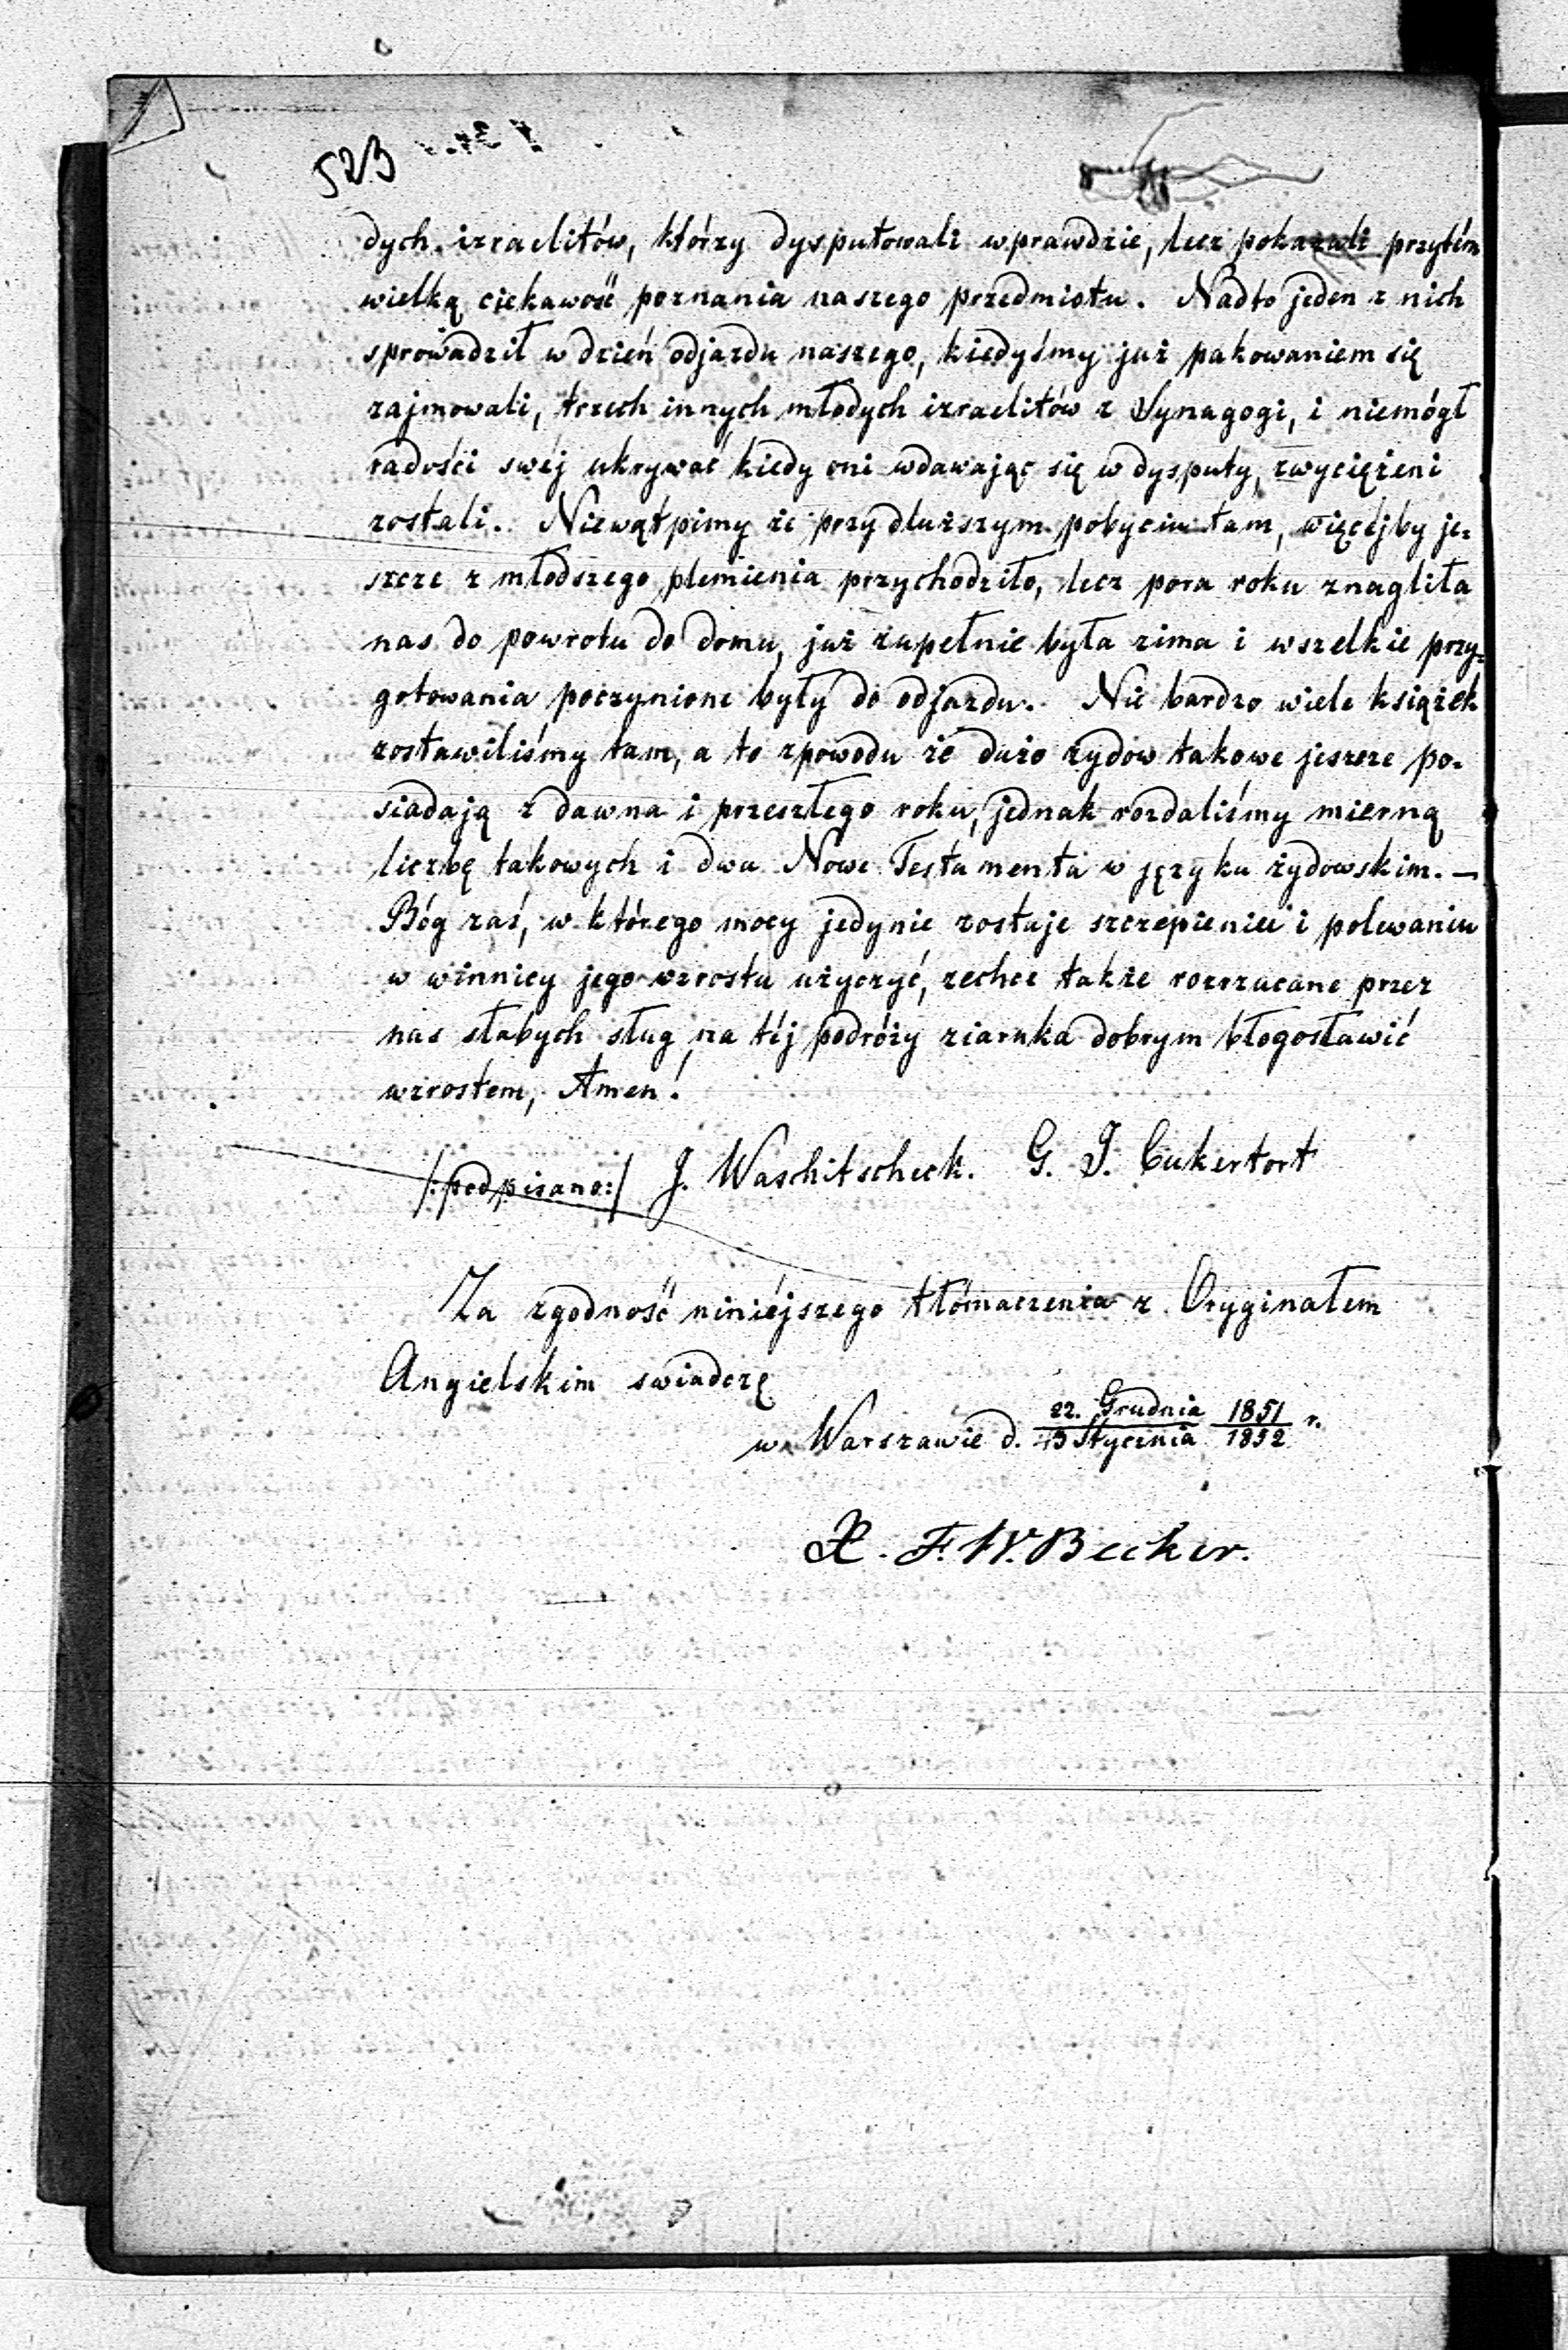 523
dych izraelitów, którzy dysputowali wprawdzie, lecz pokazali przytém
wielką ciekawość poznania naszego przedmiotu. Nadto jeden z nich
sprowadził w dzień odjazdu naszego, kiedyśmy już pakowaniem się
zajmowali, trzech innych młodych izraelitów z Synagogi, i niemógł
radości swéj ukrywać kiedy oni wdawając się w dysputy, zwyciężeni
zostali. Niewątpimy że przy dłuższym pobyciu tam, więcéjby je-
szcze z młodszego plemienia przychodziło, lecz pora roku znagliła
nas do powrotu do domu, już zupełnie była zima i wszelkie przy-
gotowania poczynione były do odjazdu. Nie bardzo wiele książek
zostawiliśmy tam, a to zpowodu że dużo żydow takowe jeszcze po-
siadają z dawna i przeszłego roku, jednak rozdaliśmy mierną
liczbę takowych i dwa Nowe Testamenta w języku żydowskim. —
Bóg zaś, w którego mocy jedynie zostaje szczepieniu i polewaniu
w winnicy jego wzrostu użyczyć, zechce także rozrzucane przez
nas słabych sług na téj podróży ziarnka dobrym błogosławić
wzrostem, Amen!
/:podpisano:/ J. Waschitscheck. G. J. Cukertort
Za zgodność niniéjszego tłómaczenia z Oryginałem
Angielskim swiadczę
w Warszawie d. 22. Grudnia / 3 Stycznia 1851 / 1852 r.
X. F. W. Becker.